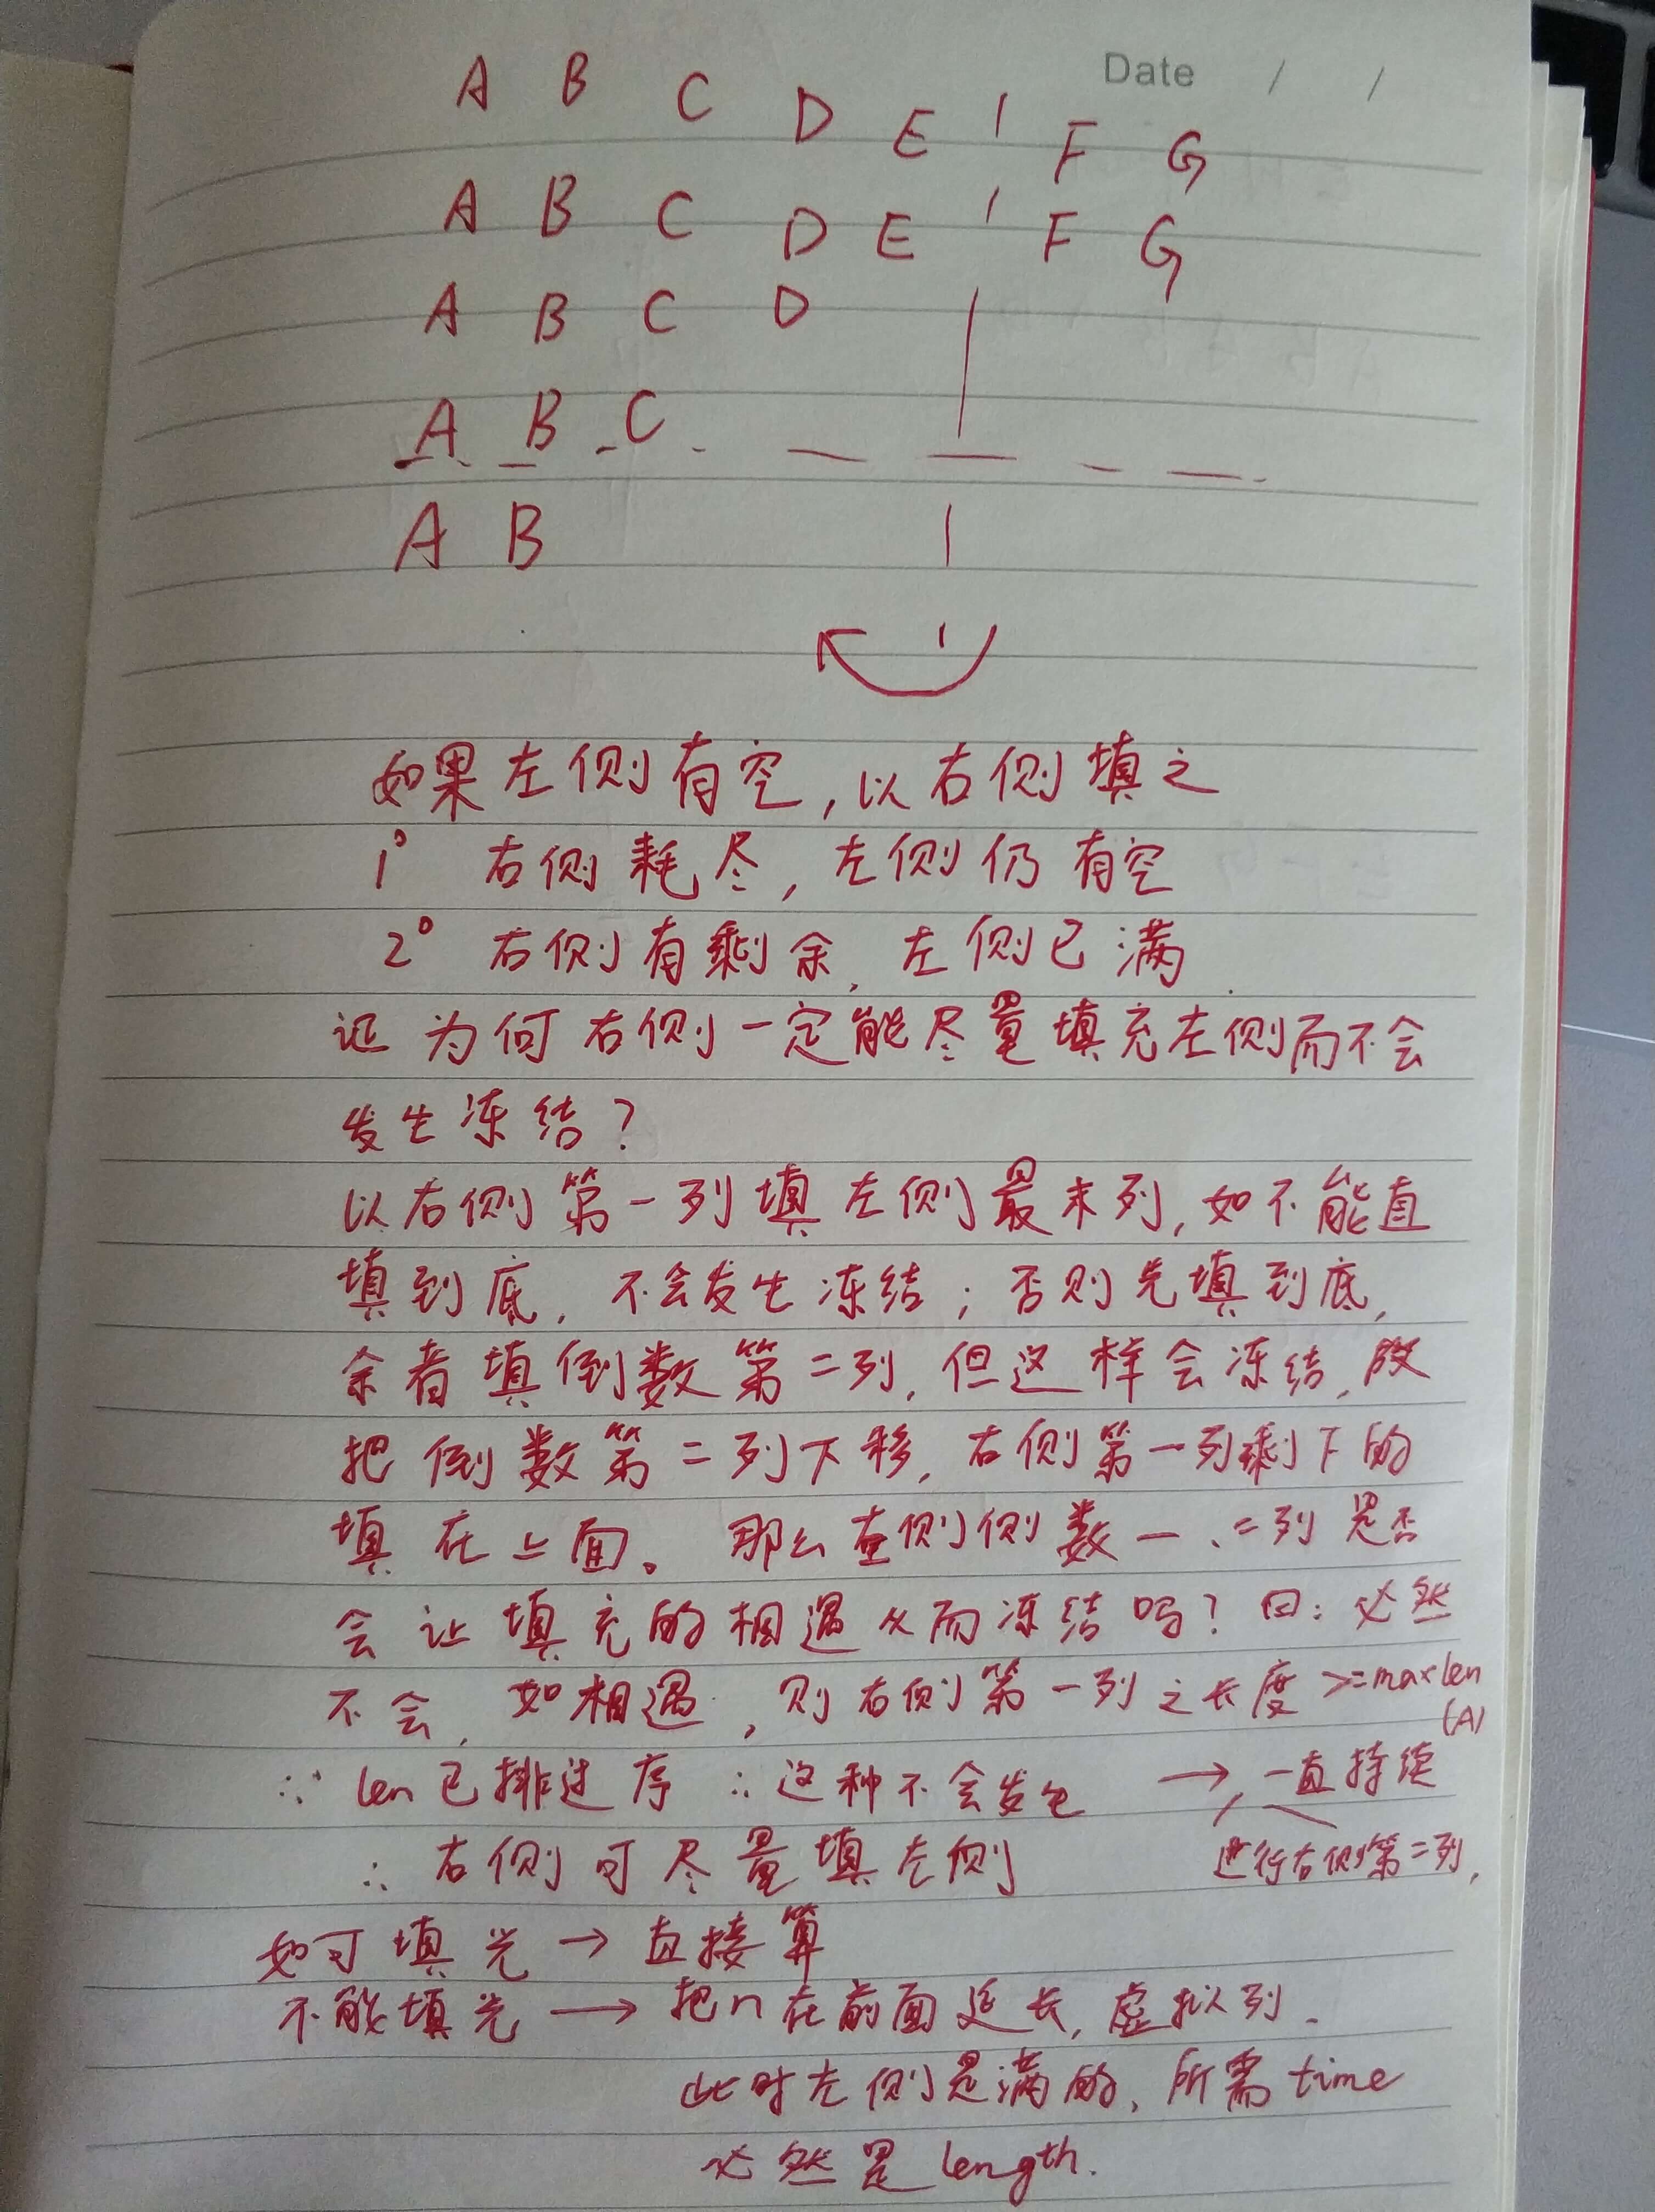 Date / /
A B C D E | F G
A B C D E | F G
A B C D |
A B C
A B |
如果左侧有空,以右侧填之
1° 右侧耗尽,左侧仍有空
2° 右侧有剩余,左侧已满
证为何右侧一定能尽量填充左侧而不会
发生冻结?
以右侧第一列填左侧最末列,如不能直
填到底,不会发生冻结;否则先填到底,
余者填倒数第二列,但这样会冻结,故
把倒数第二列下移,右侧第一列剩下的
填在上面。那么左侧倒数一、二列是否
会让填充的相遇从而冻结吗?曰:必然
不会,如相遇,则右侧第一列之长度>=maxlen
(A)
∵ len已排过序 ∴这种不会发生 → 一直持续
∴ 右侧可尽量填左侧 进行右侧第二列,
如可填光→直接算
不能填光→把n在前面延长,虚拟列.
此时左侧是满的,所需time
必然是length.